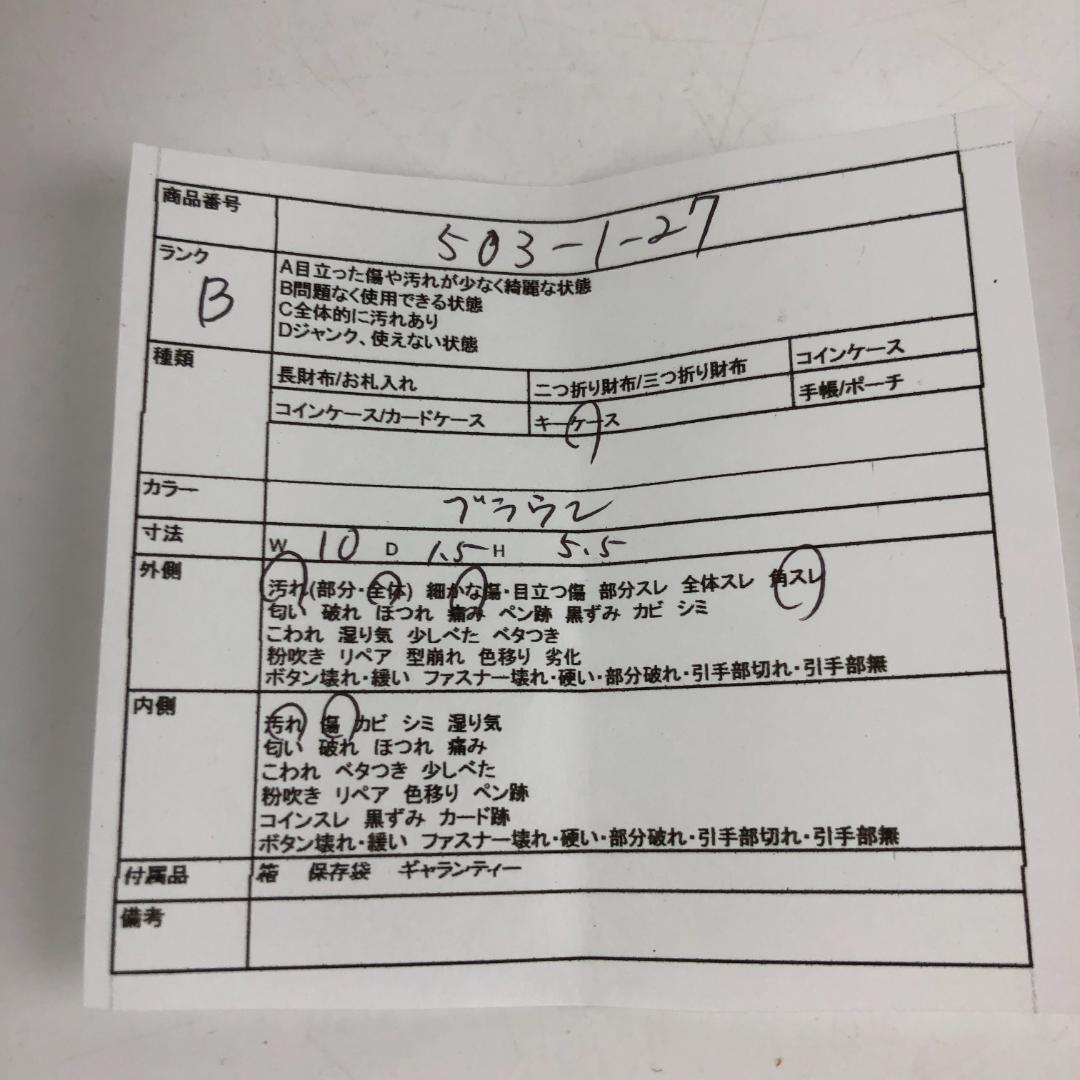 商品番号 503-1-27
ランク B
A目立った傷や汚れが少なく綺麗な状態
B問題なく使用できる状態
C全体的に汚れあり
Dジャンク、使えない状態
種類
長財布/お札入れ 二つ折り財布/三つ折り財布 コインケース
コインケース/カードケース キーケース 手帳/ポーチ
カラー ブラウン
寸法 W 10 D 1.5 H 5.5
外側
汚れ(部分・全体) 細かな傷・目立つ傷 部分スレ 全体スレ 角スレ
匂い 破れ ほつれ 痛み ペン跡 黒ずみ カビ シミ
こわれ 湿り気 少しべた ベタつき
粉吹き リペア 型崩れ 色移り 劣化
ボタン壊れ・緩い ファスナー壊れ・硬い・部分破れ・引手部切れ・引手部無
内側
汚れ 傷 カビ シミ 湿り気
匂い 破れ ほつれ 痛み
こわれ ベタつき 少しべた
粉吹き リペア 色移り ペン跡
コインスレ 黒ずみ カード跡
ボタン壊れ・緩い ファスナー壊れ・硬い・部分破れ・引手部切れ・引手部無
付属品 箱 保存袋 ギャランティー
備考